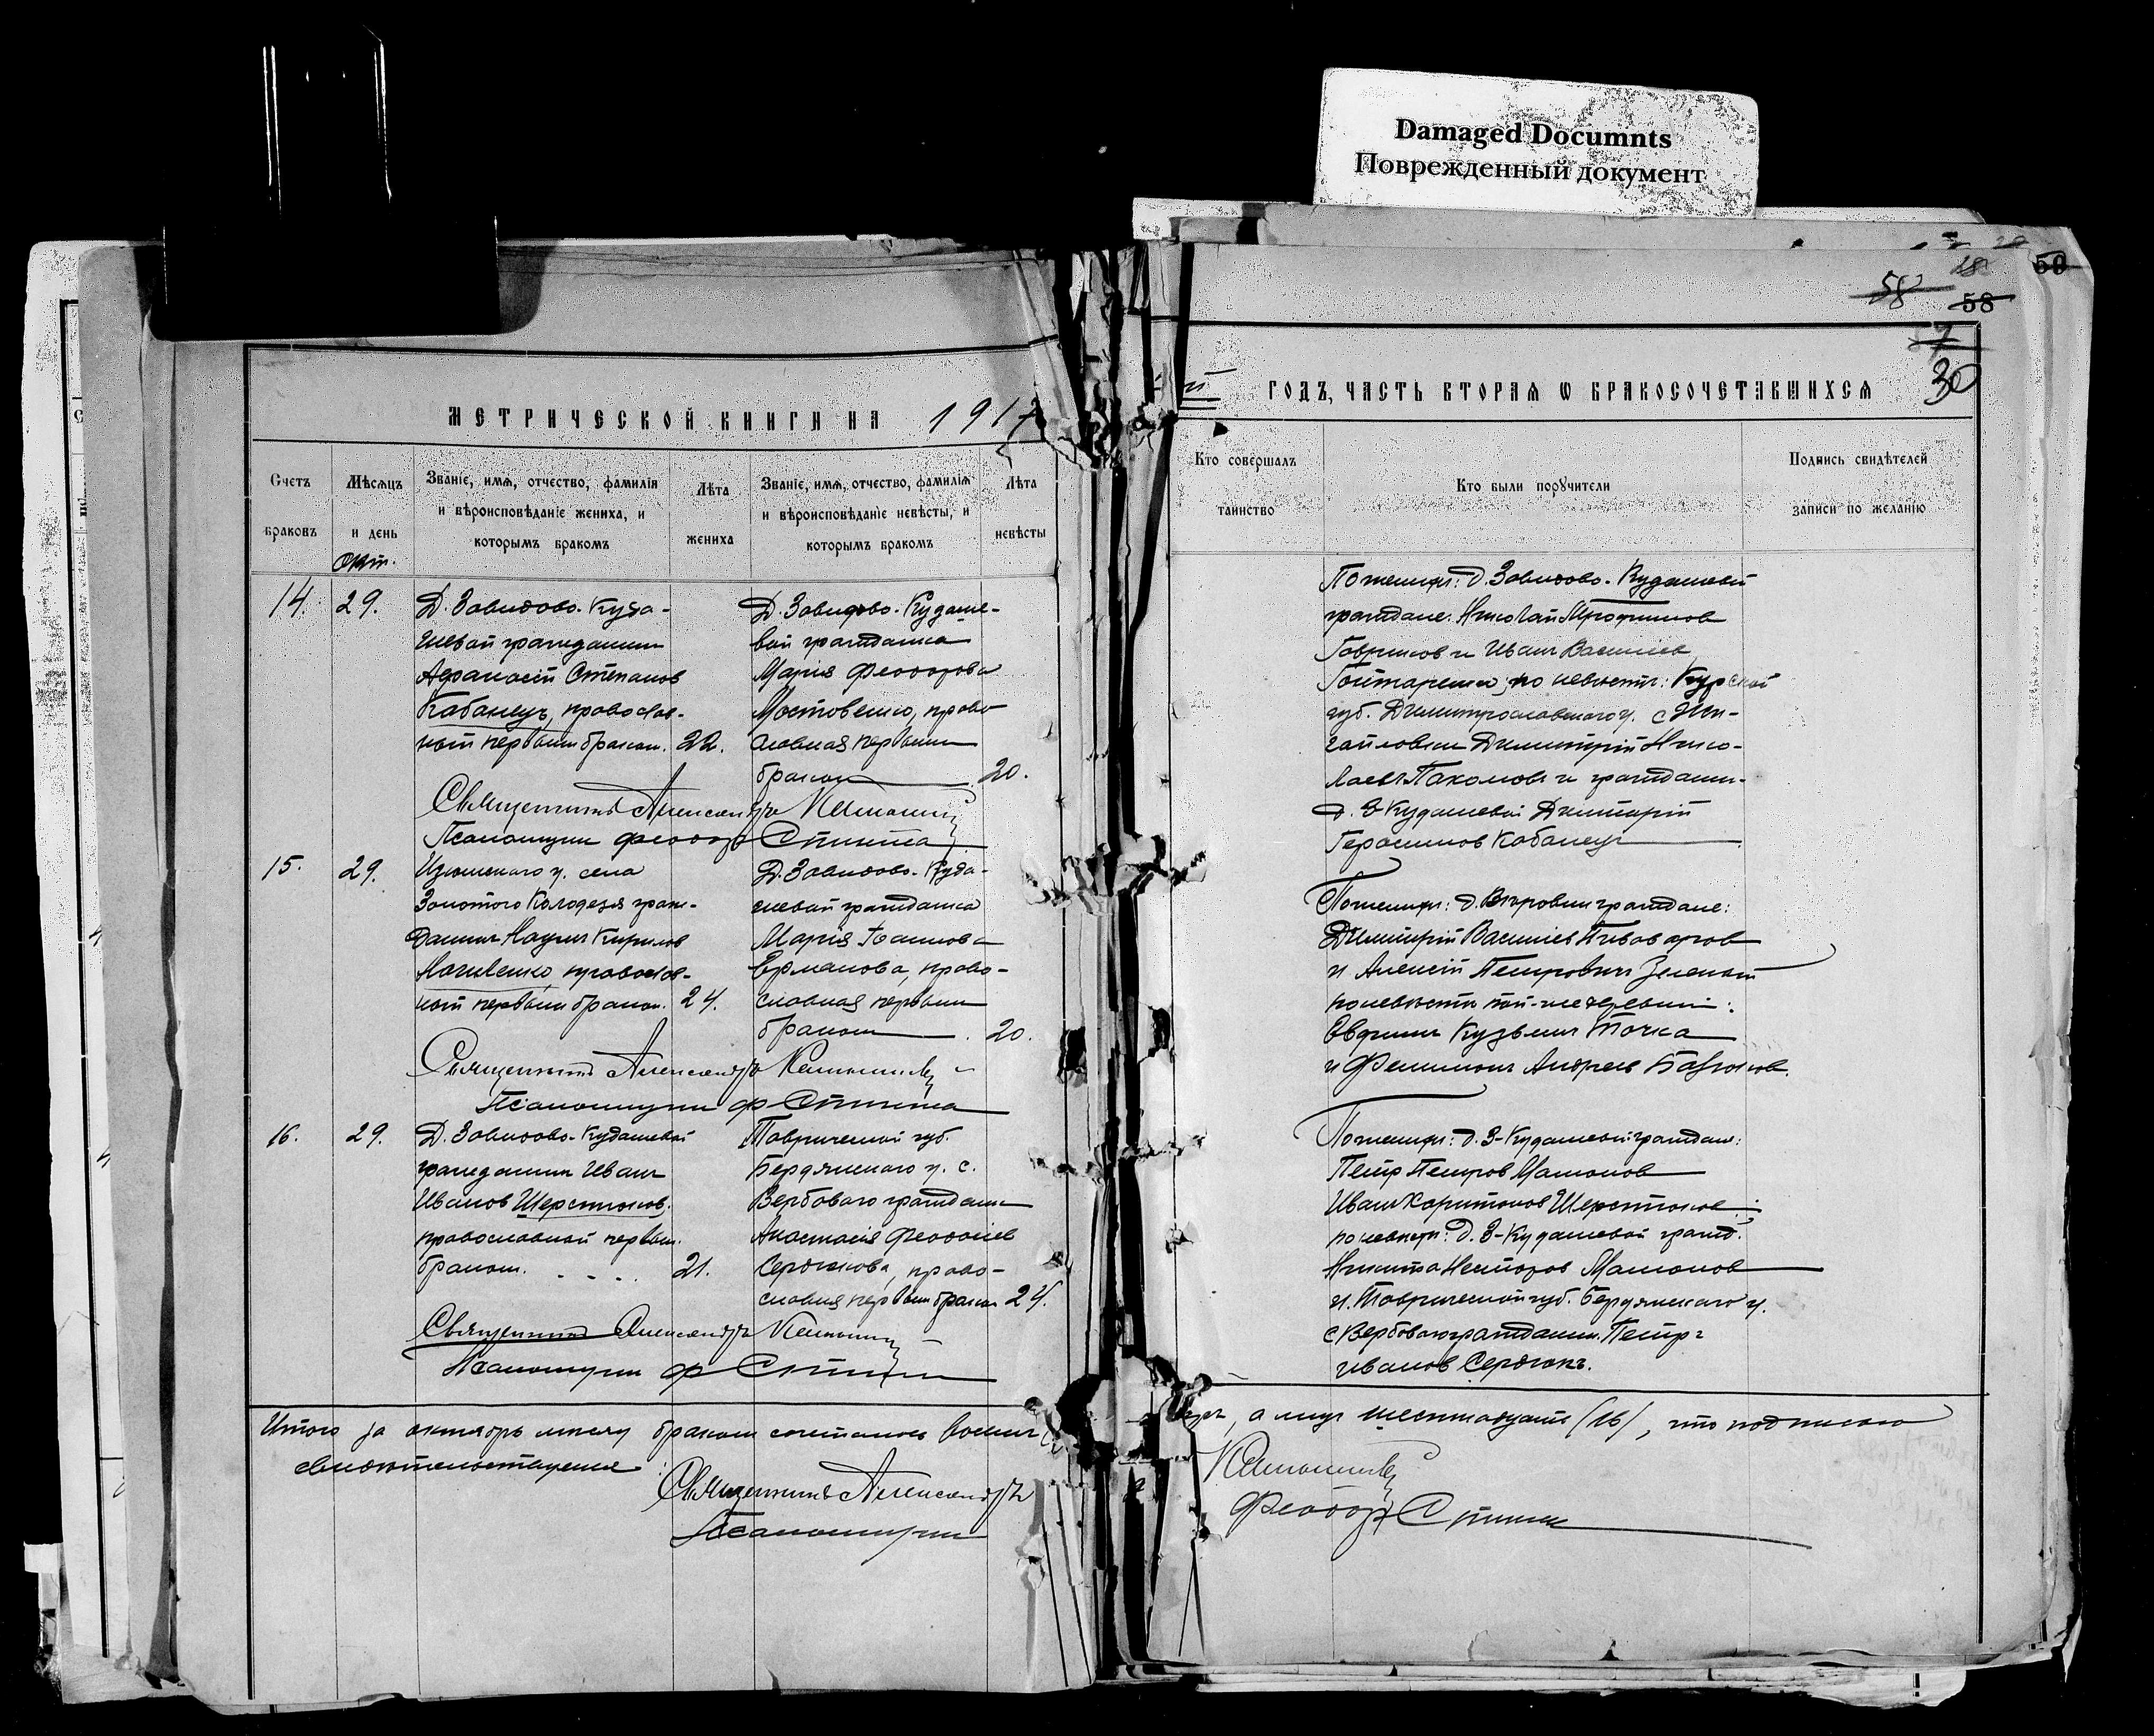 Damaged Documnts
Поврежденный документ
58
28
50
58
57
30
МЕТРИЧЕСКОЙ КНИГИ НА 1917
ГОДЪ, ЧАСТЬ ВТОРАЯ Ѡ БРАКОСОЧЕТАВШИХСЯ
Счетъ браковъ
Мѣсяцъ и день
Званіе, имя, отчество, фамилія
и вѣроисповѣданіе жениха, и
которымъ бракомъ
Лѣта жениха
Званіе, имя, отчество, фамилія
и вѣроисповѣданіе невѣсты, и
которымъ бракомъ
Лѣта невѣсты
Кто совершалъ таинство
Кто были поручители
Подпись свидѣтелей
записи по желанію
Окт.
14.
29.
Д. Завидово-Куда-
шевой гражданинъ
Афанасій Степановъ
Кабанецъ, православ-
ный первымъ бракомъ. 22.
Д. Завидово-Кудаше-
вой гражданка
Марія Феодорова
Мостовенко, право-
славная первымъ
бракомъ 20.
Священникъ Александръ
Псаломщикъ Феодоръ
По женихѣ: Д. Завидово-Кудашевой
граждане: Николай Трофимовъ
Гавриковъ и Иванъ Васильевъ
по невѣстѣ: Курской
губ. Дмитріевскаго у. с.
Димитрій Нико-
лаевъ Пахомовъ и гражданин-
д. З-Кудашевой Димитрій
Герасимовъ Кабанецъ
15.
29.
Изюмскаго у. села
Золотого Колодезя граж-
данинъ Наумъ Кириловъ
православ-
ный первымъ бракомъ. 24.
Д. Завидово-Куда-
шевой гражданка
Марія Іоаннова
Ерманова, право-
славная первымъ
бракомъ 20.
Священникъ Александръ
Псаломщикъ Ф
По женихѣ: д. Вѣровки граждане:
Димитрій Васильевъ Пивоваровъ
и Алексій Петровичъ Зеленый
по невѣстѣ той-же деревни:
Евфимъ Кузьмичъ Точка
и Филимонъ Андреевъ
16.
29.
Д. Завидово-Кудашевой
гражданинъ Иванъ
Ивановъ Шерстюковъ.
православный первым.
бракомъ. 21.
Таврической губ.
Бердянскаго у. с.
Вербоваго гражданка
Анастасія
Сердюкова, право-
славная первымъ бракомъ 24.
Священникъ Александръ
Псаломщикъ Ф
По женихѣ: д. З-Кудашевой граждане:
Петръ Петровъ Мамоновъ
Иванъ Харитоновъ Шерстюковъ;
по невѣстѣ: д. З-Кудашевой гражд.
Никита Несторовъ Мамоновъ
и Таврической губ. Бердянскаго у.
с Вербоваго гражданин. Петръ
Ивановъ Сердюкъ.
Итого за октябрь мѣсяцъ бракомъ сочеталось восемь паръ, а лицъ шестнадцать (16), что подписью
свидѣтельствуемъ:
Священникъ Александръ
Псаломщикъ Феодоръ